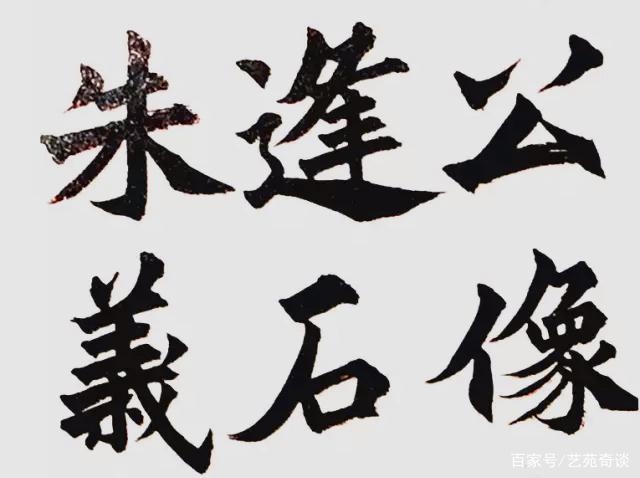 朱逢公
義石像
百家号/艺苑奇谈